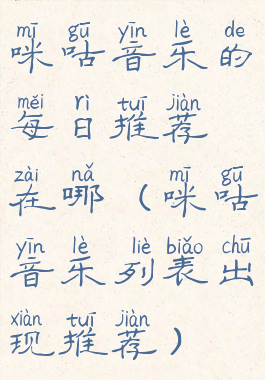 mī gū yīn lè de
咪咕音乐的
měi rì tuī jiàn
每日推荐
zài nǎ mī gū
在哪（咪咕
yīn lè liè biǎo chū
音乐列表出
xiàn tuī jiàn
现推荐）